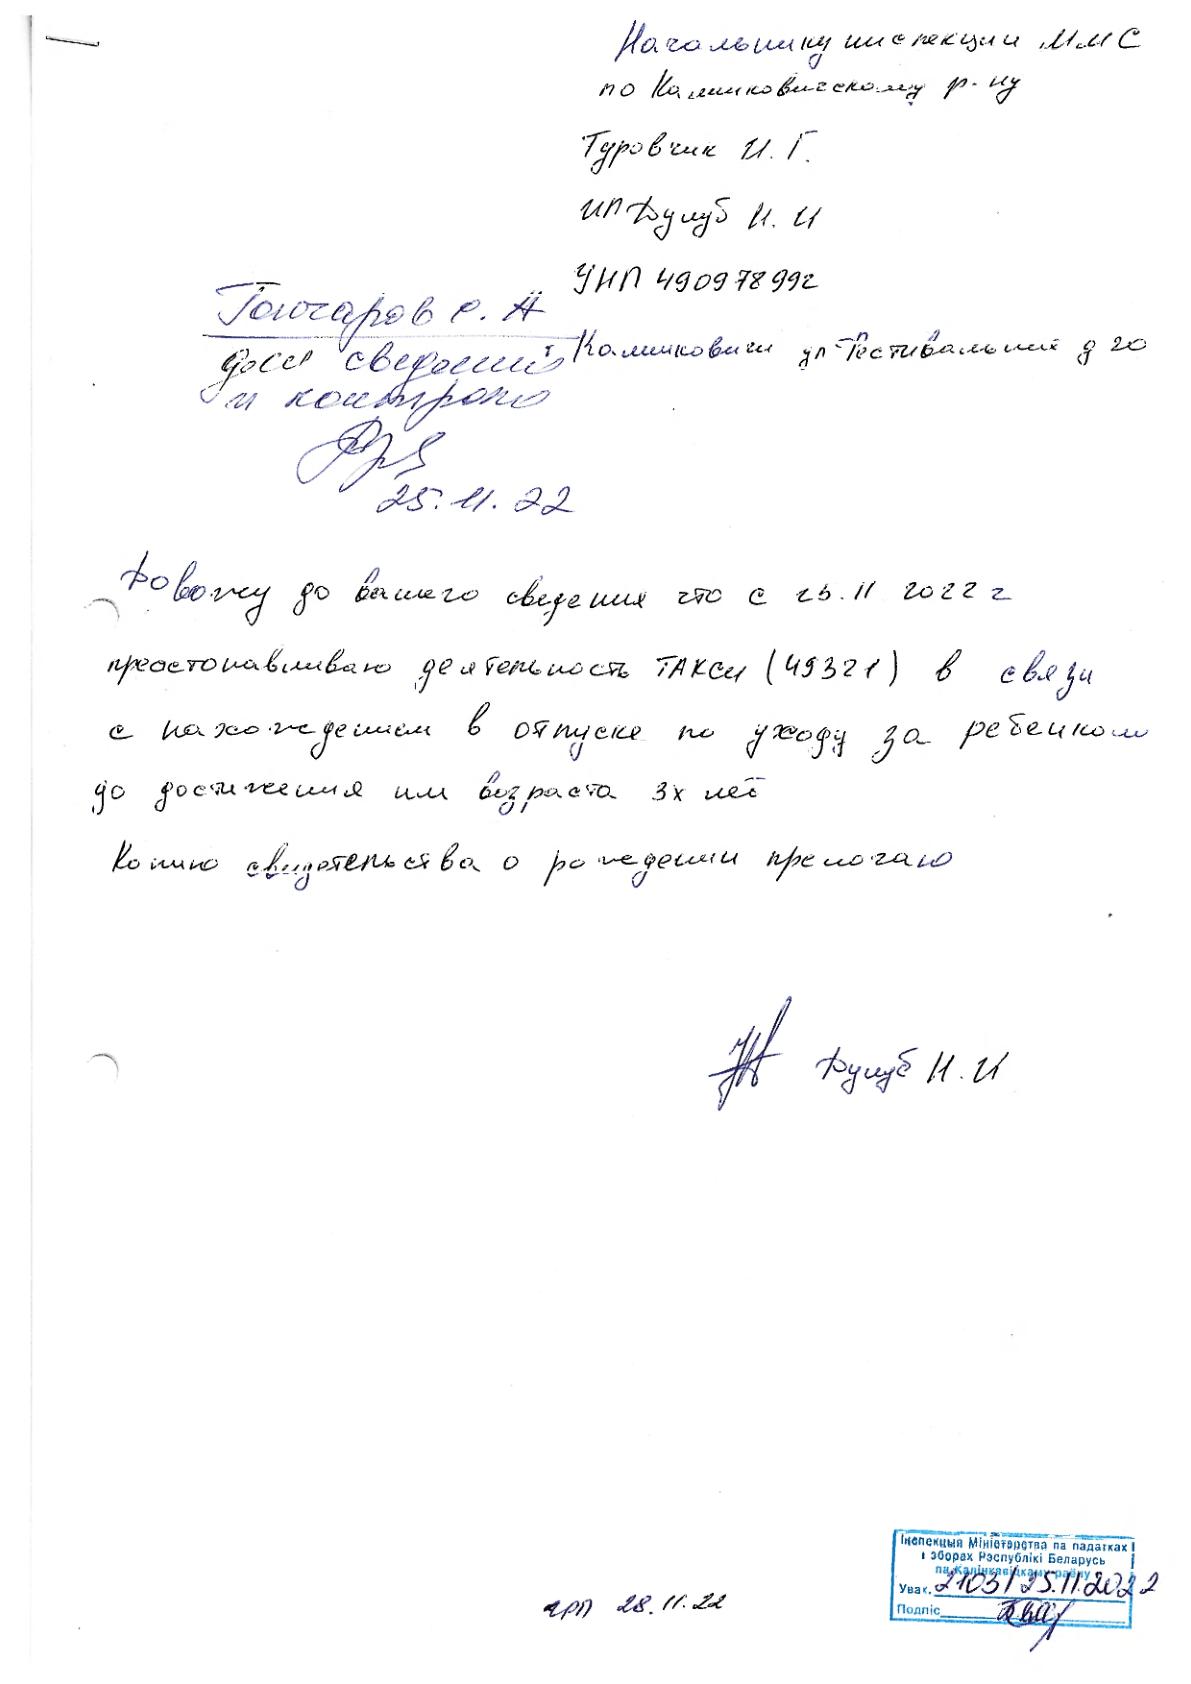 Начальнику инспекции ИМНС
по Калинковичскому р-ну
Туровчик И. Г.
ИП Дулуб Н. И
УНП 490978992
г Калинковичи ул Фестивальная д 20
Гончаров С. А
для сведения
и контроля
25.11.22
Довожу до вашего сведения что с 25.11 2022 г
преостонавливаю деятельность ТАКСИ (49321) в связи
с нахождением в отпуске по уходу за ребенком
до достижения им возраста 3х лет
Копию свидетельства о рождении прелогаю
Дулуб Н. И
Інспекцыя Міністэрства па падатках
і зборах Рэспублікі Беларусь
па Калінкавіцкаму раёну
Увах. 2103/25.11.2022
Подпіс
ГРП 28.11.22